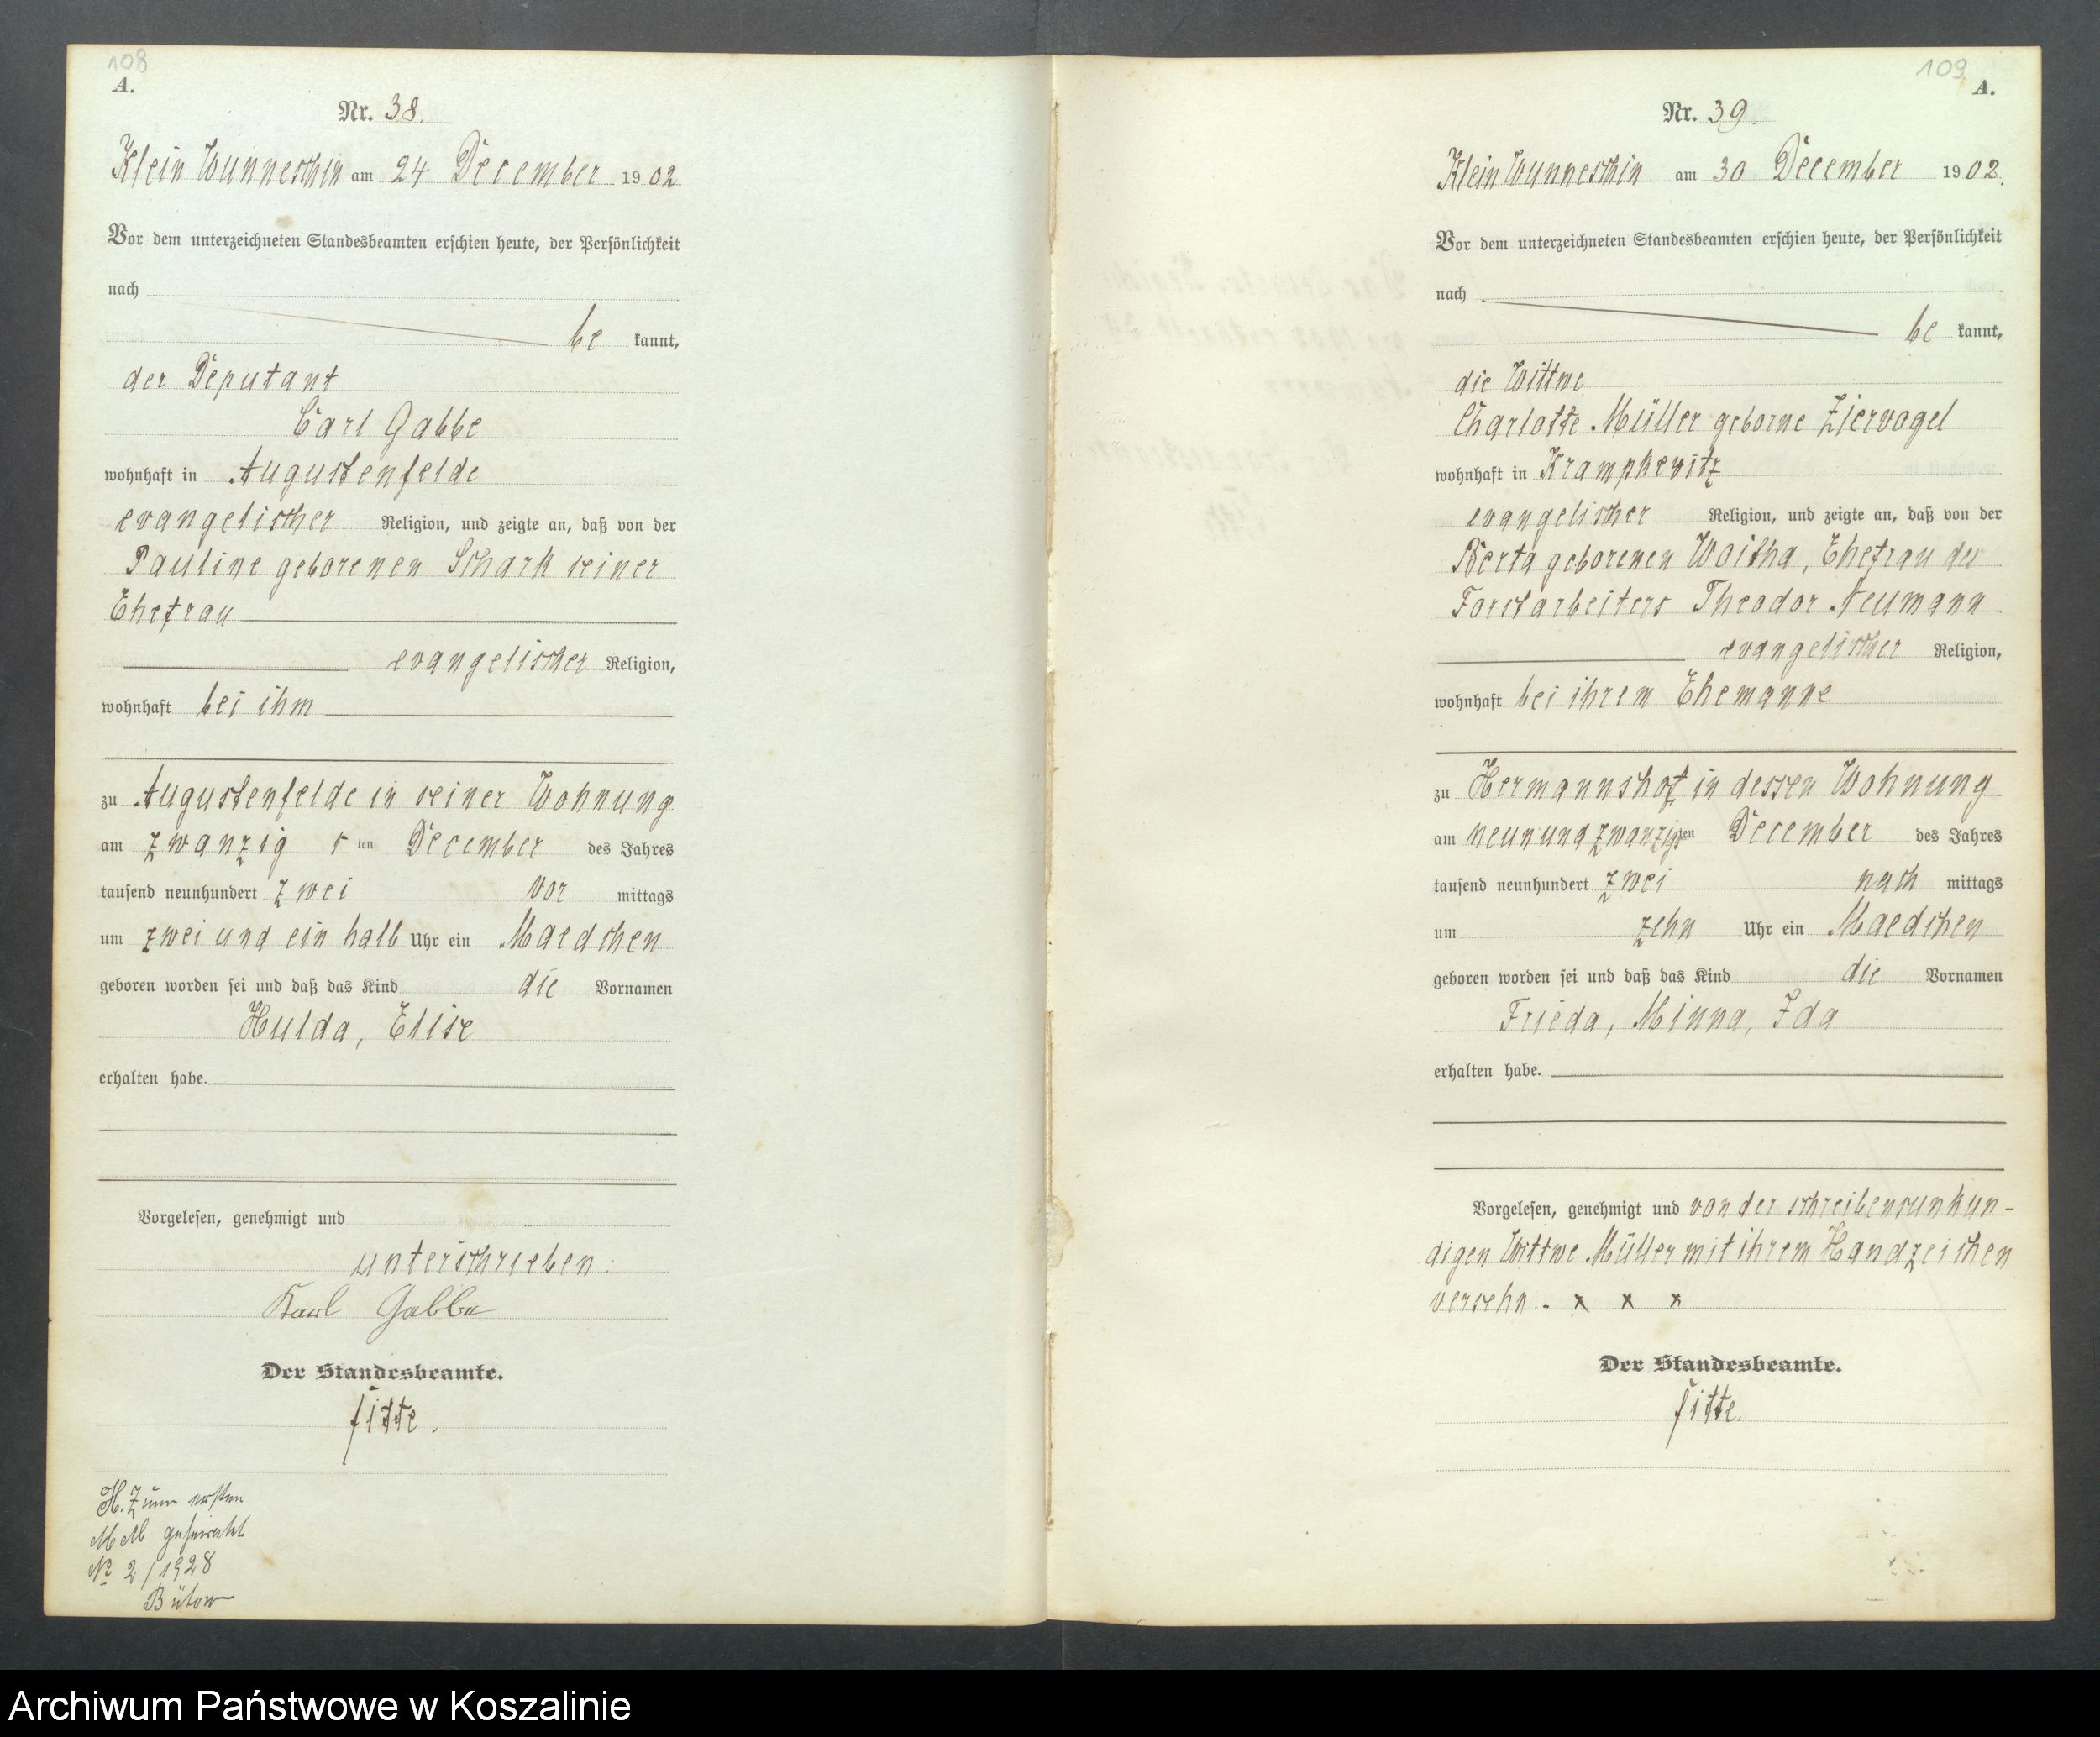 108
A.
Nr. 38.
Klein Wunneschin am 24 December 1902
Vor dem unterzeichneten Standesbeamten erschien heute, der Persönlichkeit
nach
be kannt,
der Deputant
Carl Gabbe
wohnhaft in Augustenfelde
evangelischer Religion, und zeigte an, daß von der
Pauline geborenen Schark seiner
Ehefrau
evangelischer Religion,
wohnhaft bei ihm
zu Augustenfelde in seiner Wohnung
am zwanzig s ten December des Jahres
tausend neunhundert zwei vor mittags
um zwei und ein halb Uhr ein Maedchen
geboren worden sei und daß das Kind die Vornamen
Hulda, Elise
erhalten habe.
Vorgelesen, genehmigt und
unterschrieben:
Karl Gabbe
Der Standesbeamte.
Fitte.
H. Zum ersten
Mal geheiratet
No 2/1928
Bütow
109
A.
Nr. 39.
Klein Wunneschin am 30 December 1902.
Vor dem unterzeichneten Standesbeamten erschien heute, der Persönlichkeit
nach
be kannt,
die Wittwe
Charlotte Müller geborne Ziervogel
wohnhaft in Krampkewitz
evangelischer Religion, und zeigte an, daß von der
Berta geborenen Woitha, Ehefrau des
Forstarbeiters Theodor Neumann
evangelischer Religion,
wohnhaft bei ihrem Ehemanne
zu Hermannshof in dessen Wohnung
am neunundzwanzigsten December des Jahres
tausend neunhundert zwei nach mittags
um zehn Uhr ein Maedchen
geboren worden sei und daß das Kind die Vornamen
Frieda, Minna, Ida
erhalten habe.
Vorgelesen, genehmigt und von der schreibensunkun-
digen Wittwe Müller mit ihrem Handzeichen
versehn. x x x
Der Standesbeamte.
Fitte.
Archiwum Państwowe w Koszalinie